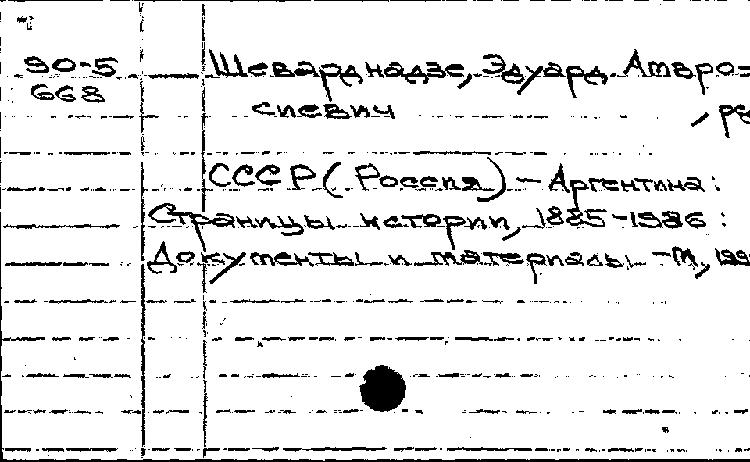 90-5 Шеварднадзе, Эдуард Амвро=
668 сиевич , ре
СССР (Россия) - Аргентина:
Страницы истории, 1885-1986:
Документы и материалы. - М., 199